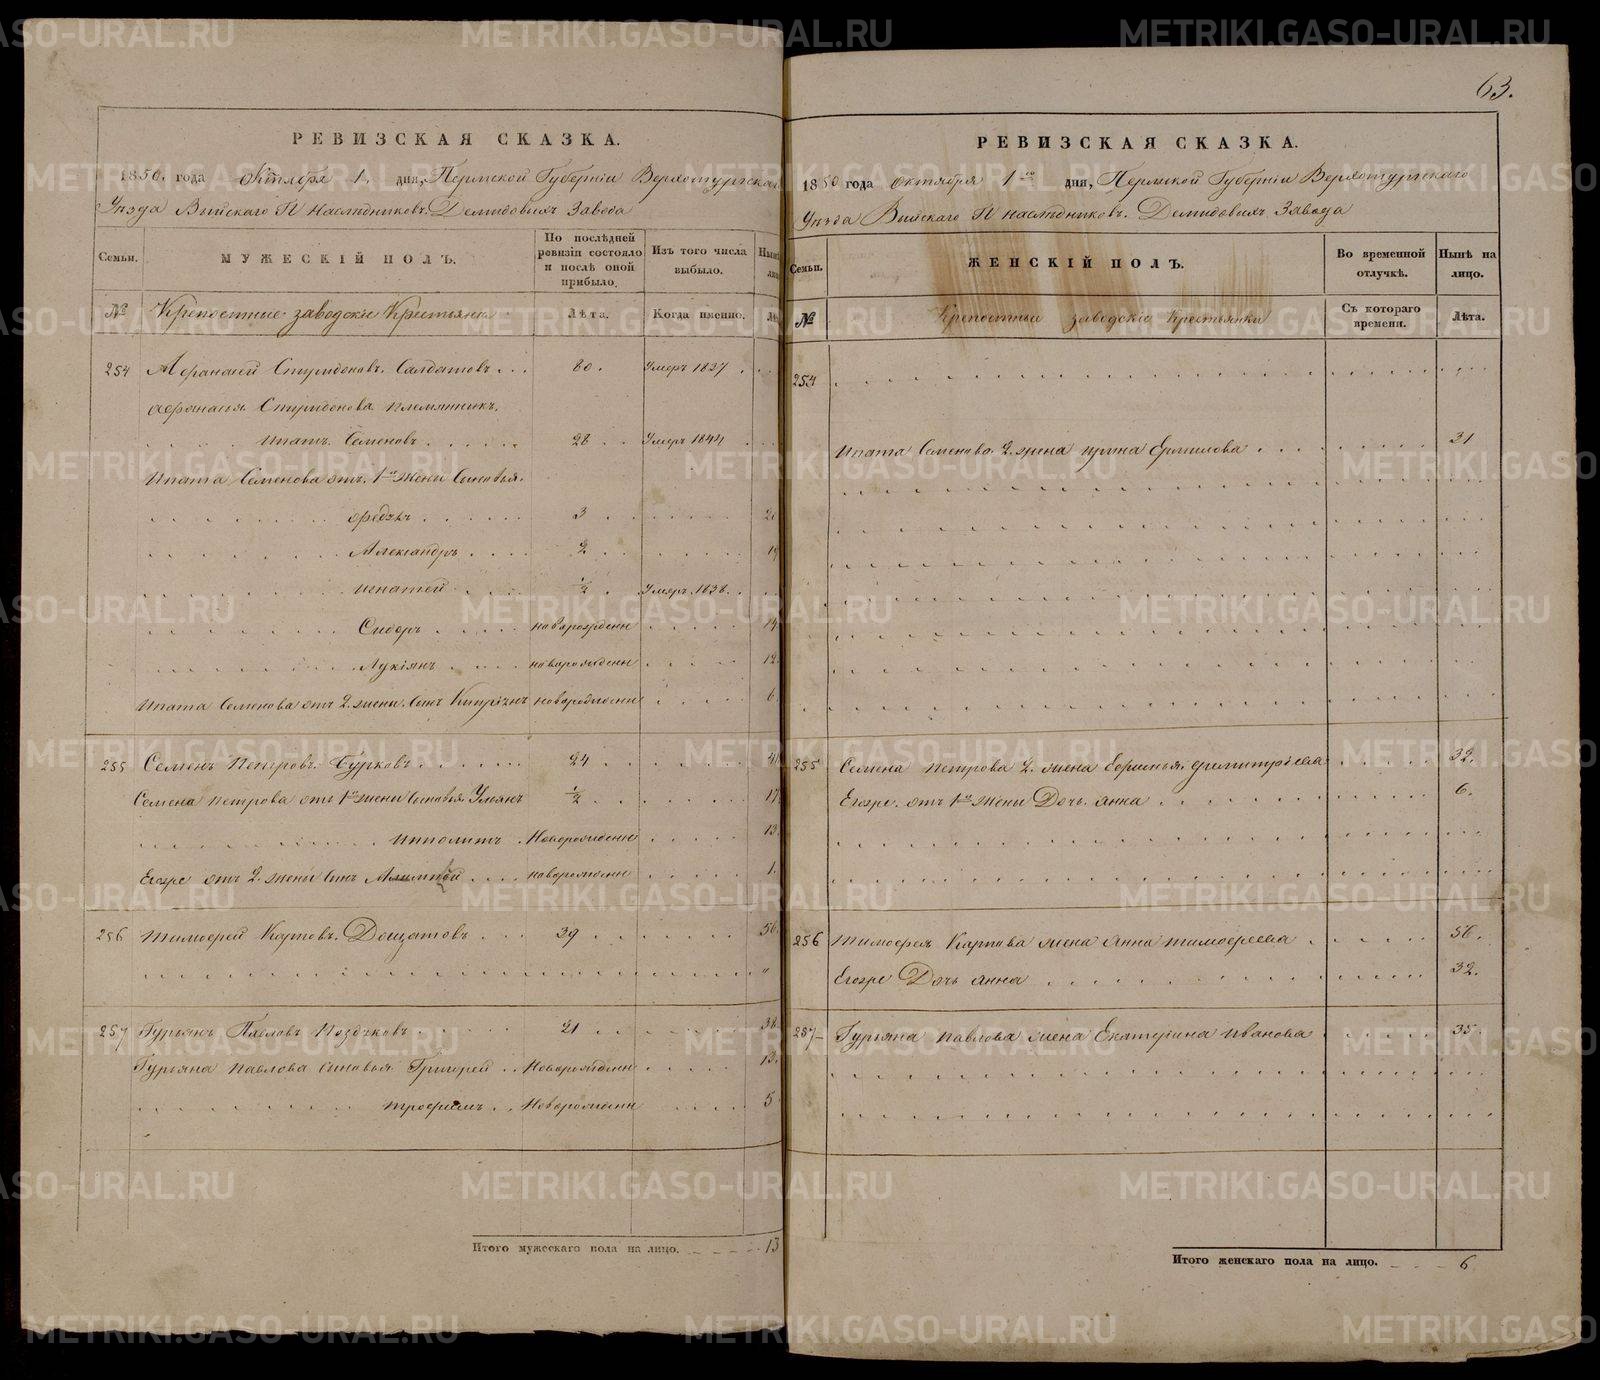 63.
РЕВИЗСКАЯ СКАЗКА.
1850. года октября 1. дня, Пермской Губерніи Верхотурскаго
Уѣзда Выйскаго Г Наслѣдников. Демидовых Завода
Семьи. МУЖЕСКІЙ ПОЛЪ. По послѣдней ревизіи состояло и послѣ оной прибыло. Изъ того числа выбыло. Нынѣ
№ Крепостные заводскіе Крестьяна Лѣта. Когда именно.
254 Афанасей Спиридоновъ Салдатовъ 80. Умеръ 1837
Афанасья Спиридонова племянникъ.
Ипатъ Семеновъ 28 Умеръ 1844
Ипата Семенова отъ 1й жены Сыновья.
3
Александръ 2
Игнатей ½ Умеръ 1838.
Сидоръ новорожденн
Лукіянъ новорожденн 12
Ипата Семенова отъ 2 жены Сынъ новорожденн 6
255 Семенъ Петровъ Бурковъ 24 41
Семена петрова отъ 1й жены Сыновья Ульянъ ½ 17
Ипполитъ Новорожденн 13
Егоже отъ 2. жены Сынъ новорожденн 1.
256 Тимофей Карповъ Дощатовъ 39 56
257 Гурьянъ Павловъ 21 38
Гурьяна Павлова Сыновья Григорей Новорожденн 13.
трофимъ Новорожденн 5
Итого мужескаго пола на лицо. 13
РЕВИЗСКАЯ СКАЗКА.
1850 года октября 1го дня, Пермской Губерніи Верхотурскаго
Уѣзда Выйскаго Г наслѣдниковъ. Демидовыхъ Завода
Семьи. ЖЕНСКІЙ ПОЛЪ. Во временной отлучкѣ. Нынѣ на лицо.
№ Крепостные заводскіе Крестьянки Съ котораго времени. Лѣта.
254
Ипата Семенова 2. жена ирина Ермилова 31
255 Семена петрова 2. жена 32.
Егоже. отъ 1й жены Дочь. анна 6.
256 Тимофея Карпова жена Анна тимофеева 56.
Егоже Дочь анна 32.
257 Гурьяна павлова жена Екатерина иванова 35
Итого женскаго пола на лицо. 6
METRIKI.GASO-URAL.RU